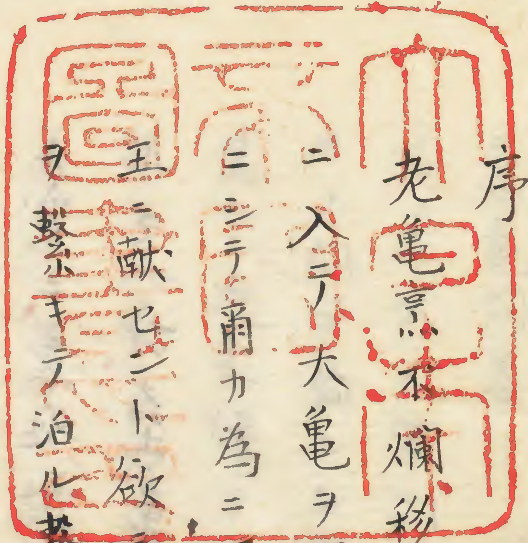 序
老亀烹不爛移
ニ入テ大亀ヲ
ニシテ爾カ為ニ
王ニ献セント欲
ヲ繋キテ泊ル